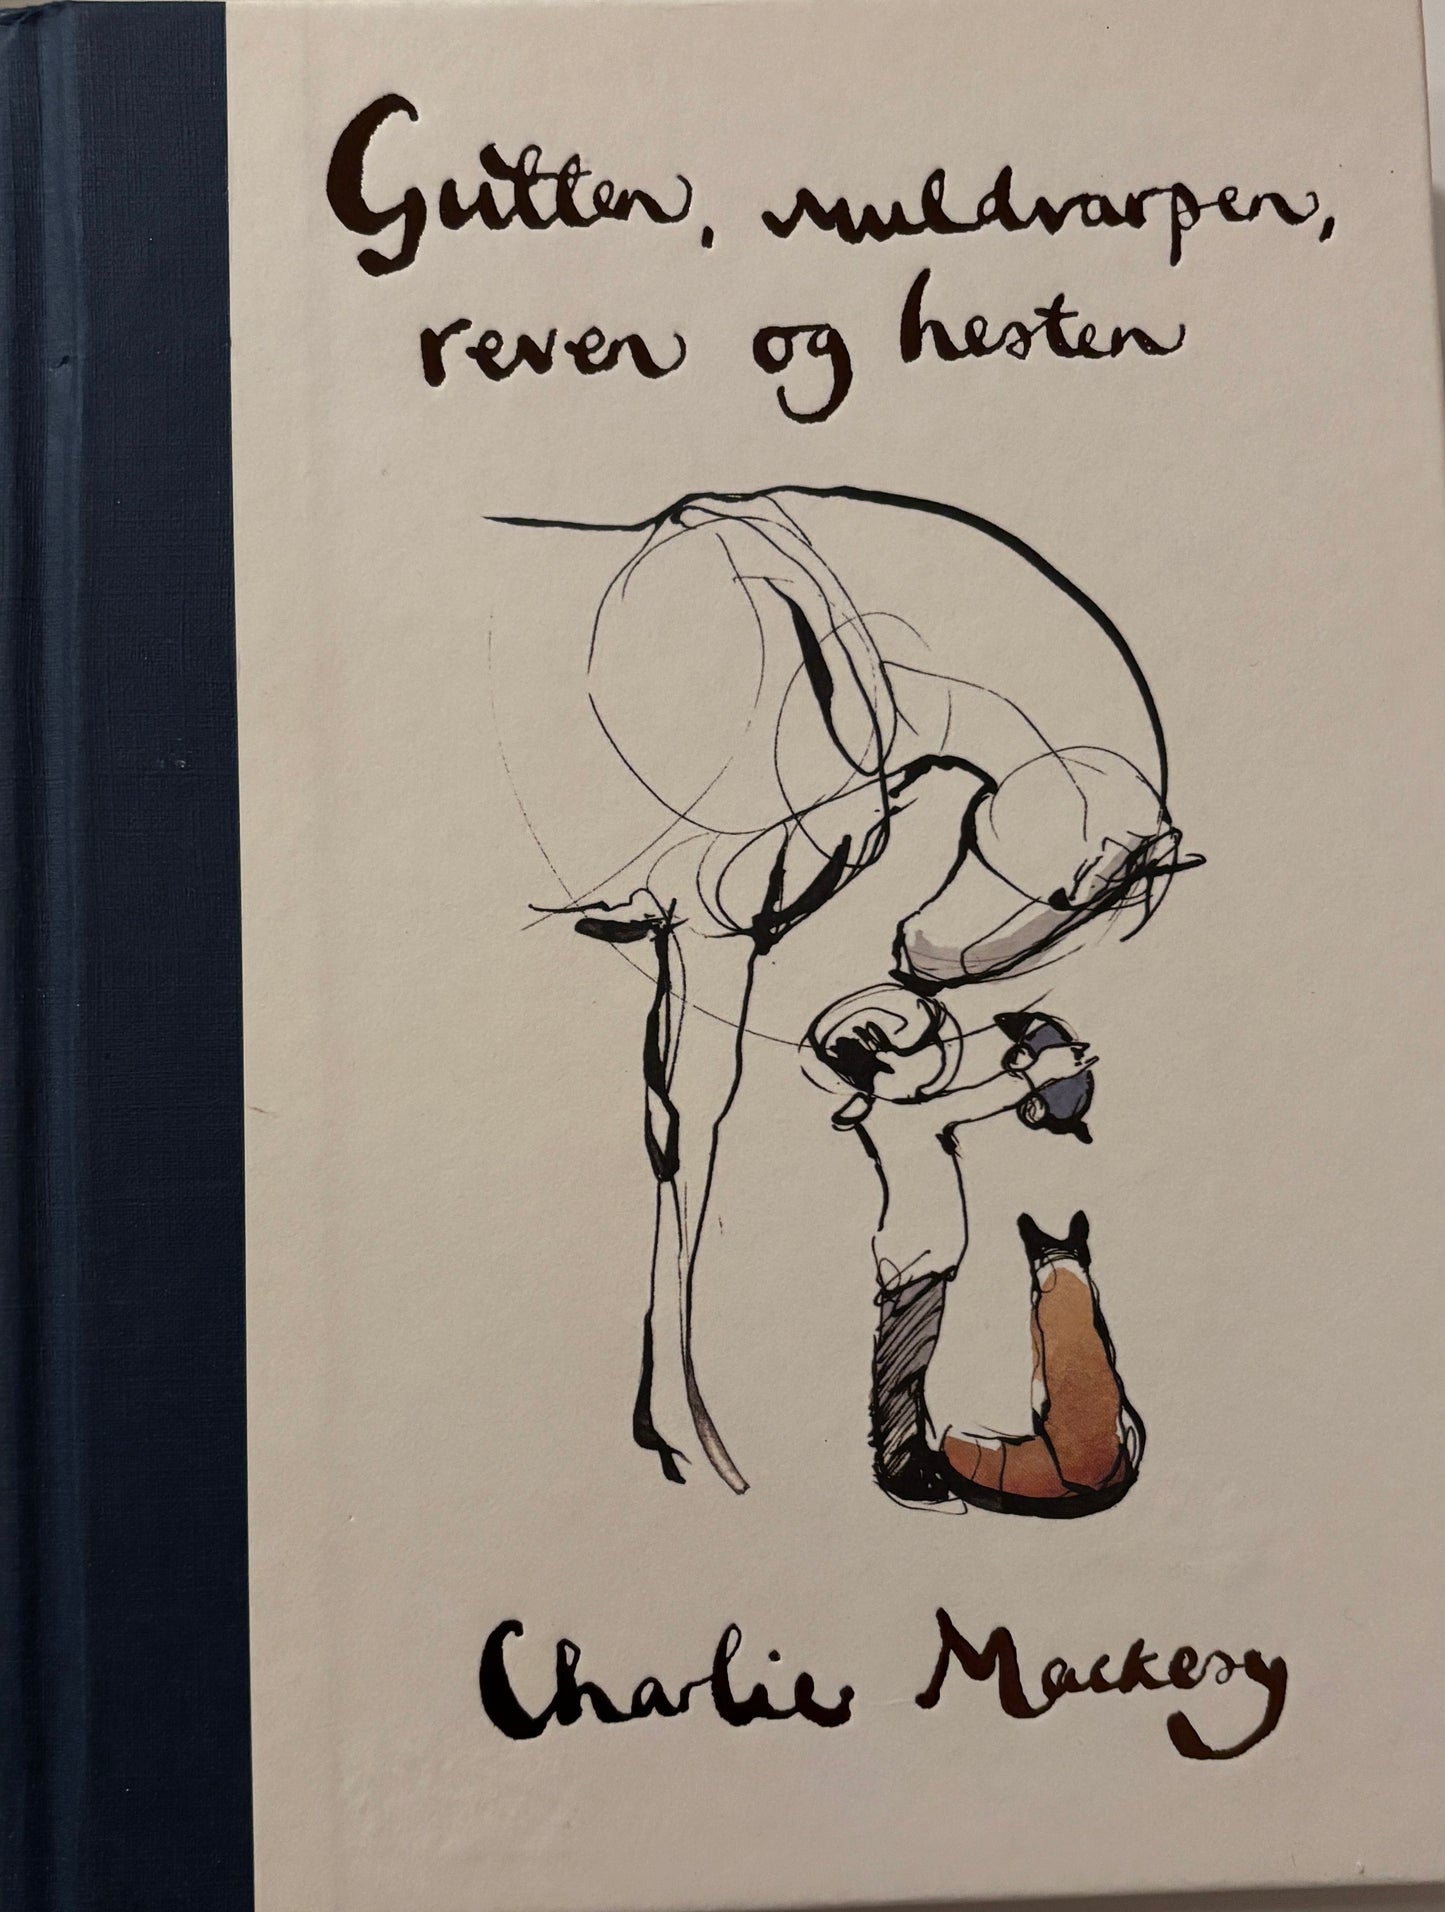 Gutten, muldvarpen,
reven og hesten
Charlie Mackesy